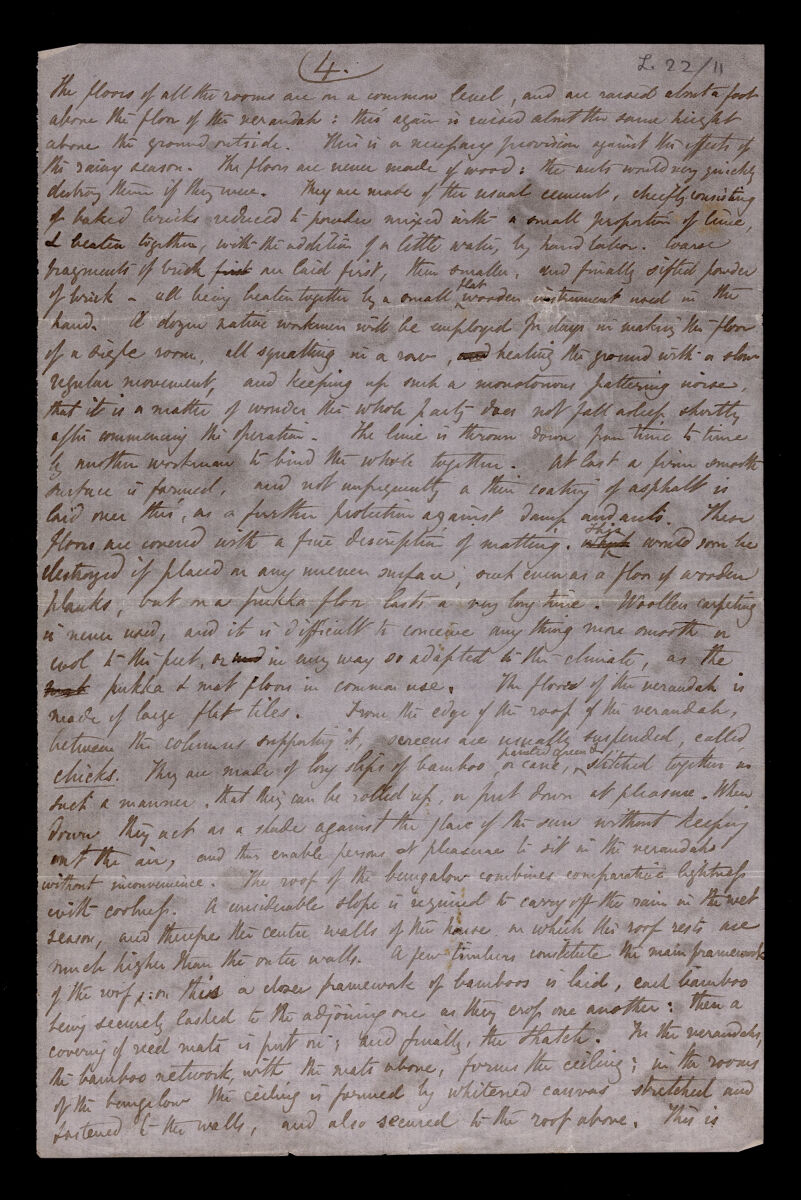 4.
L. 22/11
The floors of all the rooms are on a common level, and are raised about a foot
above the floor of the verandah: this again is raised about the same height
above the ground outside. This is a necessary provision against the effects of
the rainy season. The floors are never made of wood: the ants would very quickly
destroy them if they were. They are made of the usual cement, chiefly consisting
of baked bricks reduced to powder mixed with a small proportion of lime,
& beaten together, with the addition of a little water, by hand labor. Coarse
fragments of brick first are laid first, then smaller, and finally sifted powder
of brick – all being beaten together by a small flat wooden instrument used in the
hand. A dozen native workmen will be employed for days in making the floor
of a single room, all squatting in a row, and beating the ground with a slow
regular movement, and keeping up such a monotonous pattering noise,
that it is a matter of wonder the whole party does not fall asleep shortly
after commencing the operation. The lime is thrown down from time to time
by another workman to bind the whole together. At last a firm smooth
surface is formed, and not unfrequently a thin coating of asphalt is
laid over this, as a further protection against damp and ants. These
floors are covered with a fine description of matting. This would soon be
destroyed if placed on any uneven surface, such even as a floor of wooden
planks, but on a pukka floor lasts a very long time. Woollen carpeting
is never used, and it is difficult to conceive any thing more smooth or
cool to the feet, or in any way so adapted to the climate, as the
pukka & mat floors in common use. The floor of the verandah is
made of large flat tiles. From the edge of the roof of the verandah,
between the columns supporting it, screens are usually suspended, called
chicks. They are made of long slips of bamboo, or cane, painted green stitched together in
such a manner, that they can be rolled up, or put down at pleasure. When
down they act as a shade against the glare of the sun without keeping
out the air, and thus enable persons at pleasure to sit in the verandahs
without inconvenience. The roof of the bungalow combines comparative lightness
with coolness. A considerable slope is required to carry off the rain in the wet
season, and therefore the centre walls of the house on which the roof rests are
much higher than the outer walls. A few timbers constitute the main framework
of the roof; on this a closer framework of bamboos is laid, each bamboo
being securely lashed to the adjoining one as they cross one another: then a
covering of reed mats is put on; and finally, the thatch. In the verandahs,
the bamboo network, with the mats above, forms the ceiling; in the rooms
of the bungalow the ceiling is formed by whitened canvas stretched and
fastened to the walls, and also secured to the roof above. This is